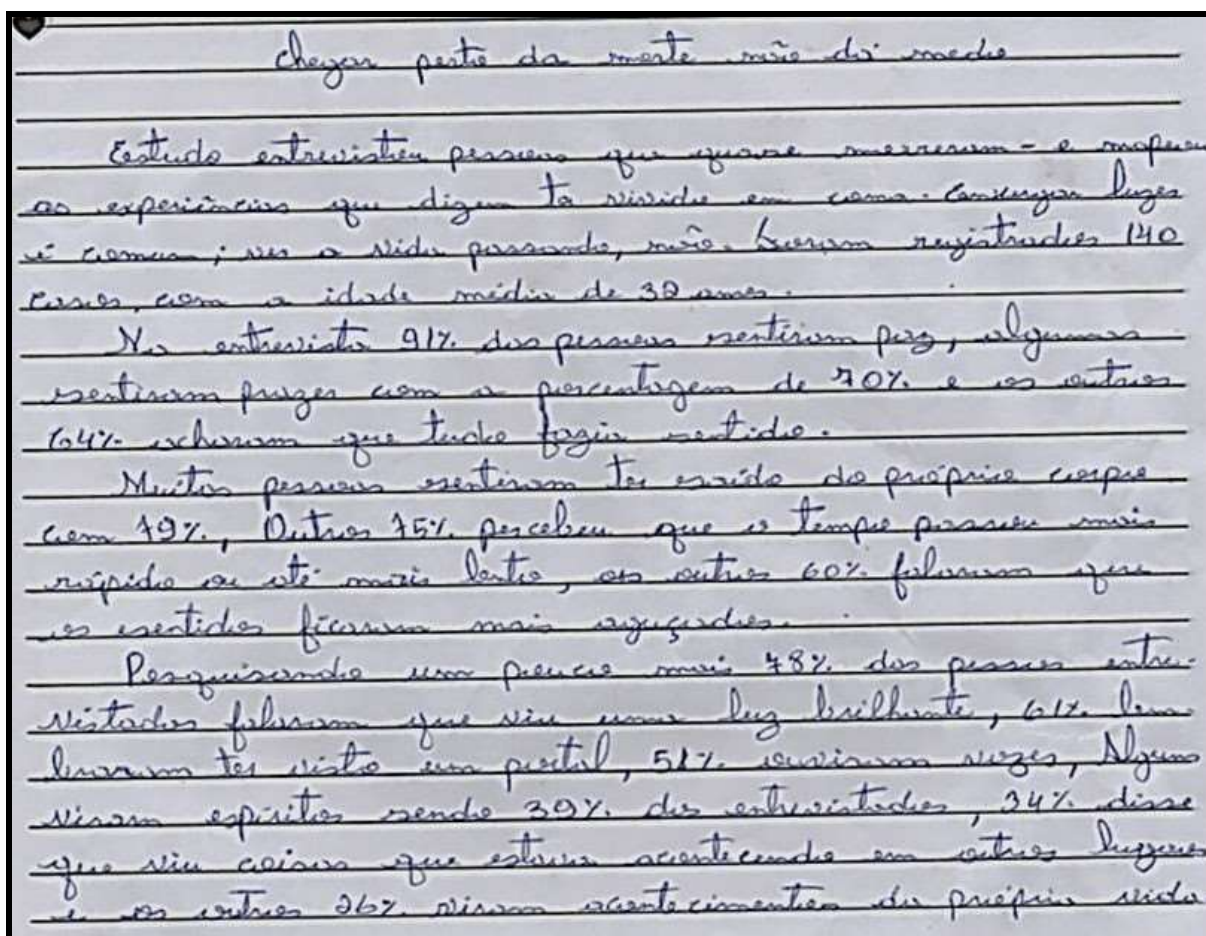 chegar perto da morte não dá medo
Estudo entrevistou pessoas que quase morreram - e mapeou
as experiências que dizem ter vivido em coma. Enxergar luzes
é comum; ver a vida passando, não. Foram registrados 140
casos, com a idade média de 32 anos.
Na entrevista 91% das pessoas sentiram paz, algumas
sentiram prazer com a porcentagem de 70% e os outros
64% acharam que tudo fazia sentido.
Muitas pessoas sentiram ter saído do próprio corpo
com 79%, Outros 75% percebeu que o tempo passou mais
rápido ou até mais lento, os outros 60% falaram que
os sentidos ficaram mais aguçados.
Pesquisando um pouco mais 78% das pessoas entre-
vistadas falaram que viu uma luz brilhante, 61% lem
braram ter visto um portal, 51% ouviram vozes, Alguns
viram espíritos sendo 39% dos entrevistados, 34% disse
que viu coisas que estava acontecendo em outros luggares
e os outros 26% viram acontecimentos da própria vida